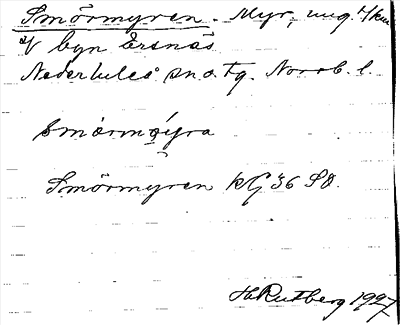 Smörmyren. Myr, ung. 1/km
V byn Ersnäs
Nederluleå sn o. tg. Norrb. l.
Smörmyren kG 36 SO.
H Rutberg 1927